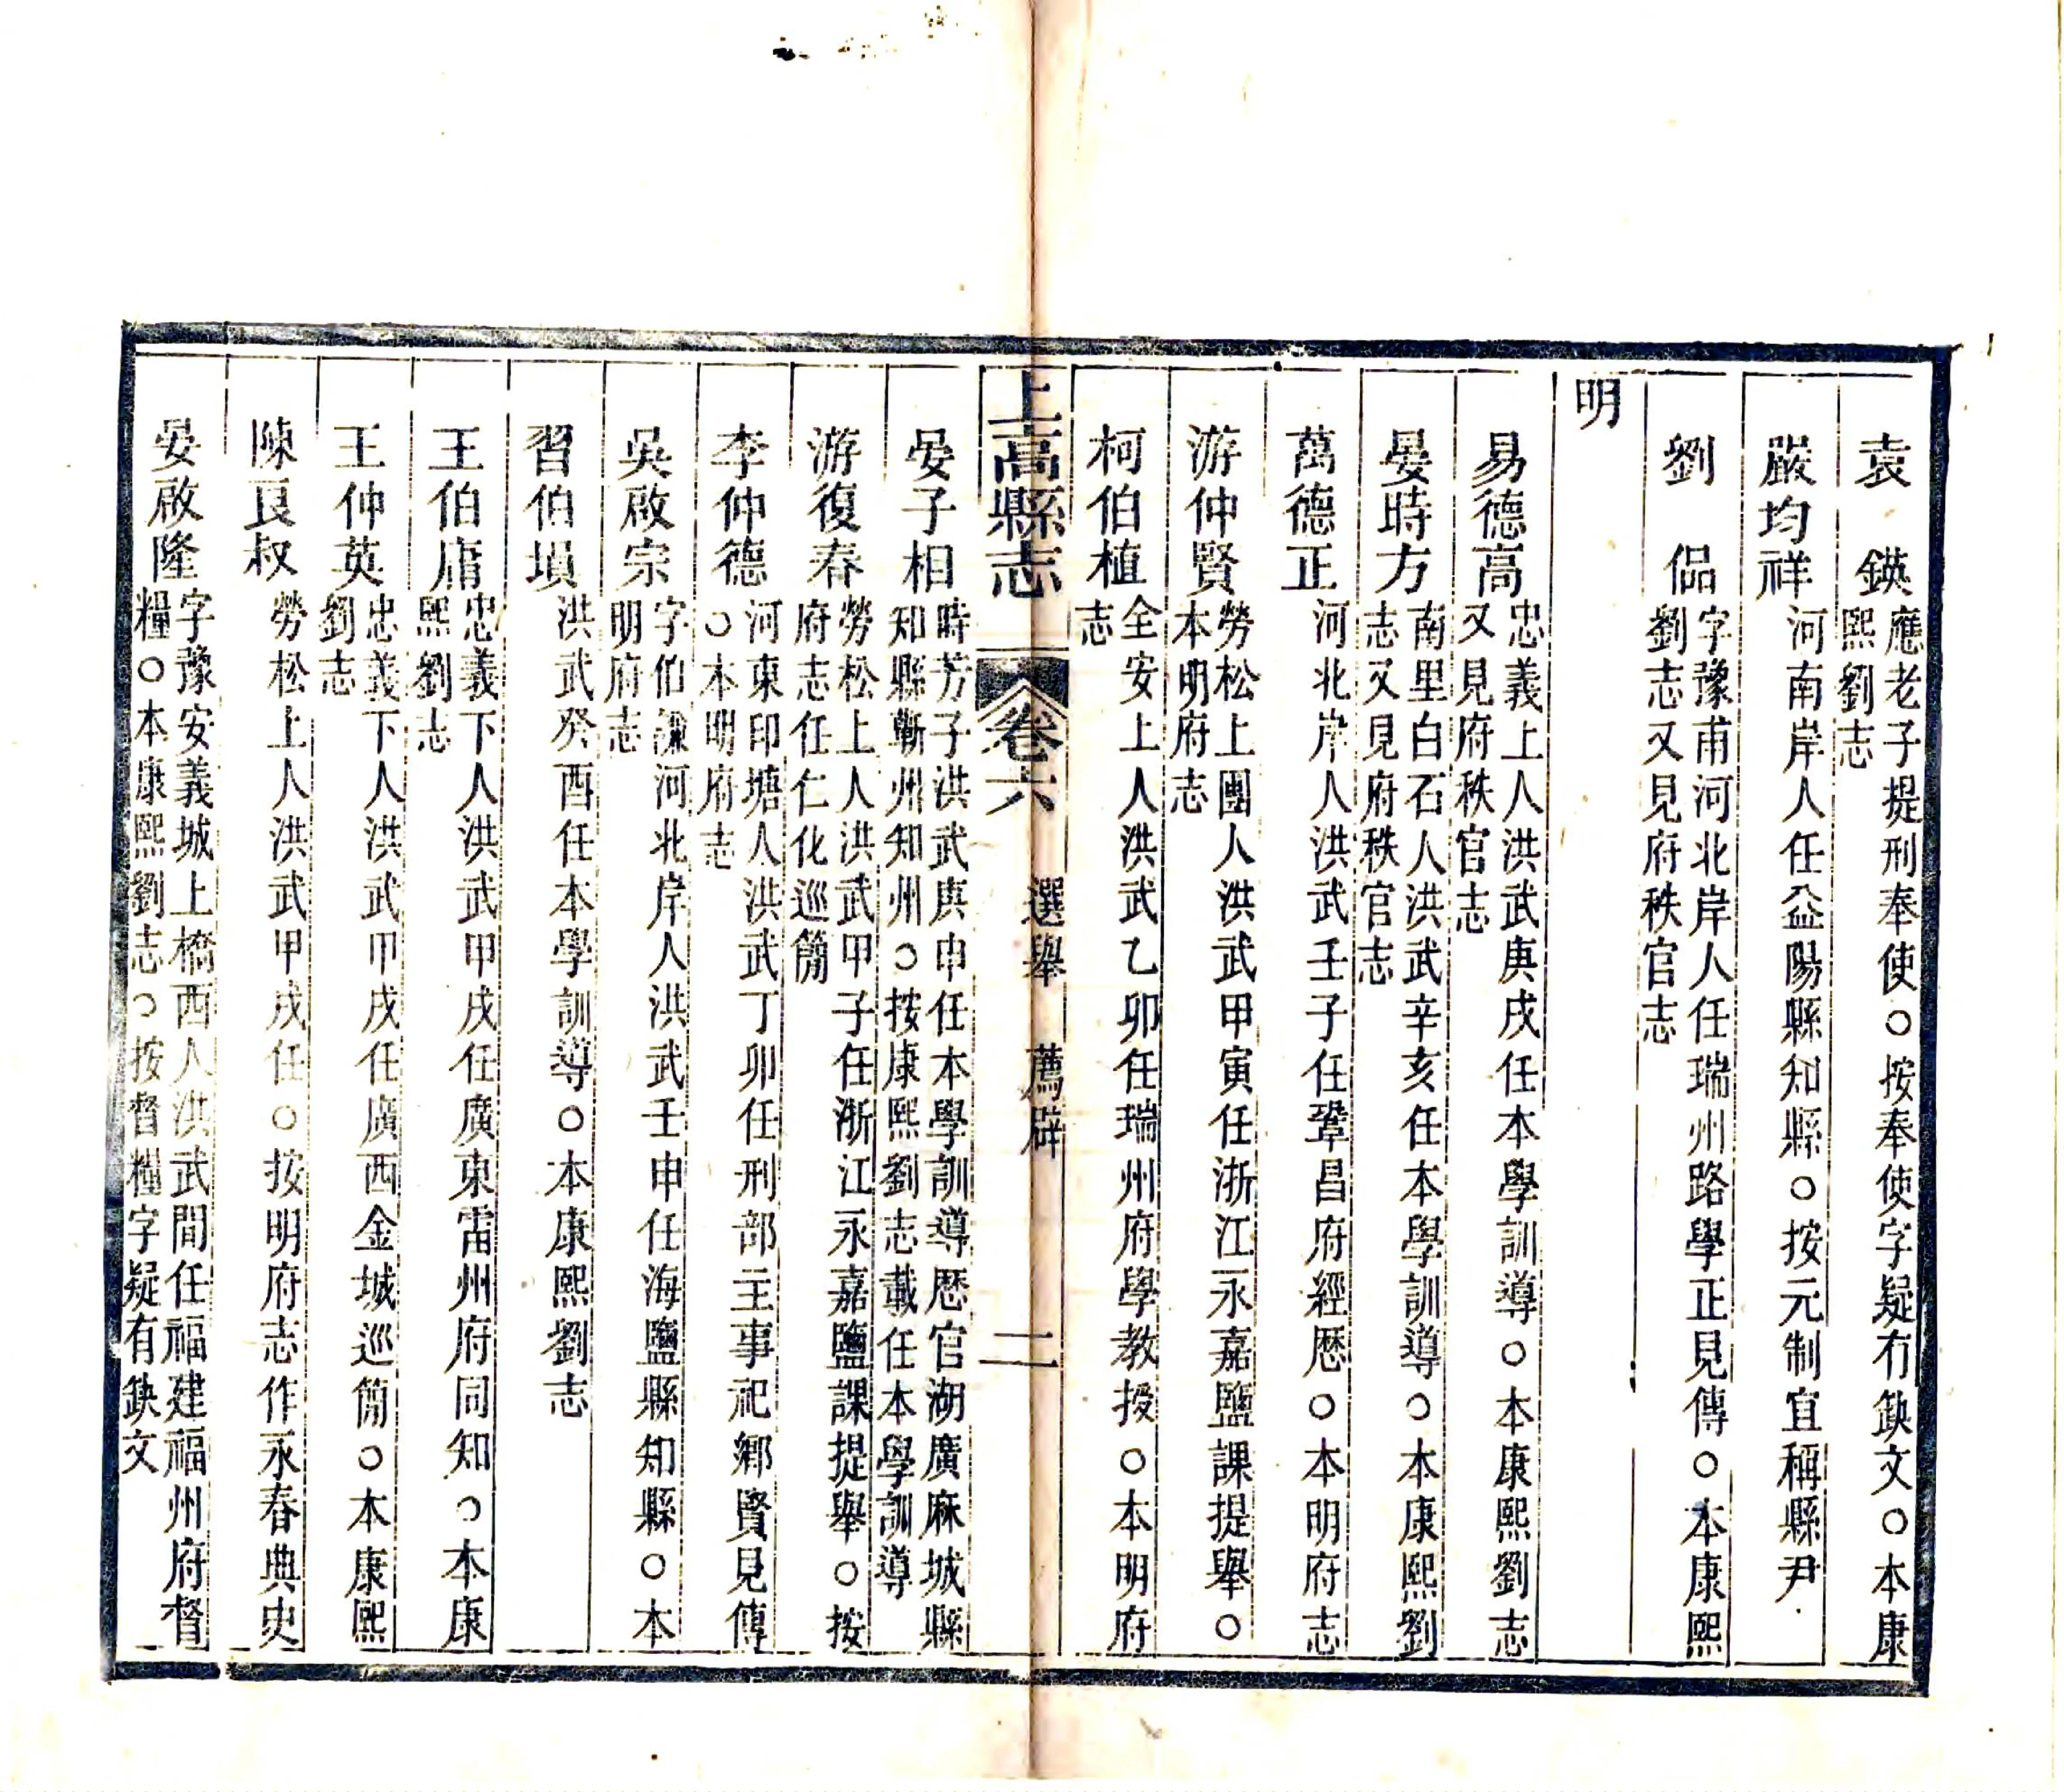 袁　鍈應老子提刑奉使○按奉使字疑有缺文○本康
熙劉志
嚴均祥河南岸人任益陽縣知縣○按元制宜稱縣尹
劉　侣字豫甫河北岸人任瑞州路學正見傳○本康熙
劉志又見府秩官志
明
易德高忠義上人洪武庚戌任本學訓導○本康熙劉志
又見府秩官志
晏時方南里白石人洪武辛亥任本學訓導○本康熙劉
志又見府秩官志
萬德正河北岸人洪武壬子任鞏昌府經歷○本明府志
游仲賢勞松上團人洪武甲寅任浙江永嘉鹽課提舉○
本明府志
柯伯植全安上人洪武乙卯任瑞州府學教授○本明府
志
上高縣志　卷六　選舉　薦辟　二
晏子相時芳子洪武庚申任本學訓導歷官湖廣麻城縣
知縣蘄州知州○按康熙劉志載任本學訓導
游復春勞松上人洪武甲子任浙江永嘉鹽課提舉○按
府志任仁化巡簡
李仲德河東印塘人洪武丁卯任刑部主事祀鄉賢見傳
○本明府志
吳啟宗字伯謙河北岸人洪武壬申任海鹽縣知縣○本
明府志
習伯塤洪武癸酉任本學訓導○本康熙劉志
王伯庸忠義下人洪武甲戌任廣東雷州府同知○本康
熙劉志
王仲英忠義下人洪武甲戌任廣西金城巡簡○本康熙
劉志
陳良叔勞松上人洪武甲戌任○按明府志作永春典史
晏啟隆字豫安義城上橋西人洪武間任福建福州府督
糧○本康熙劉志○按督糧字疑有缺文